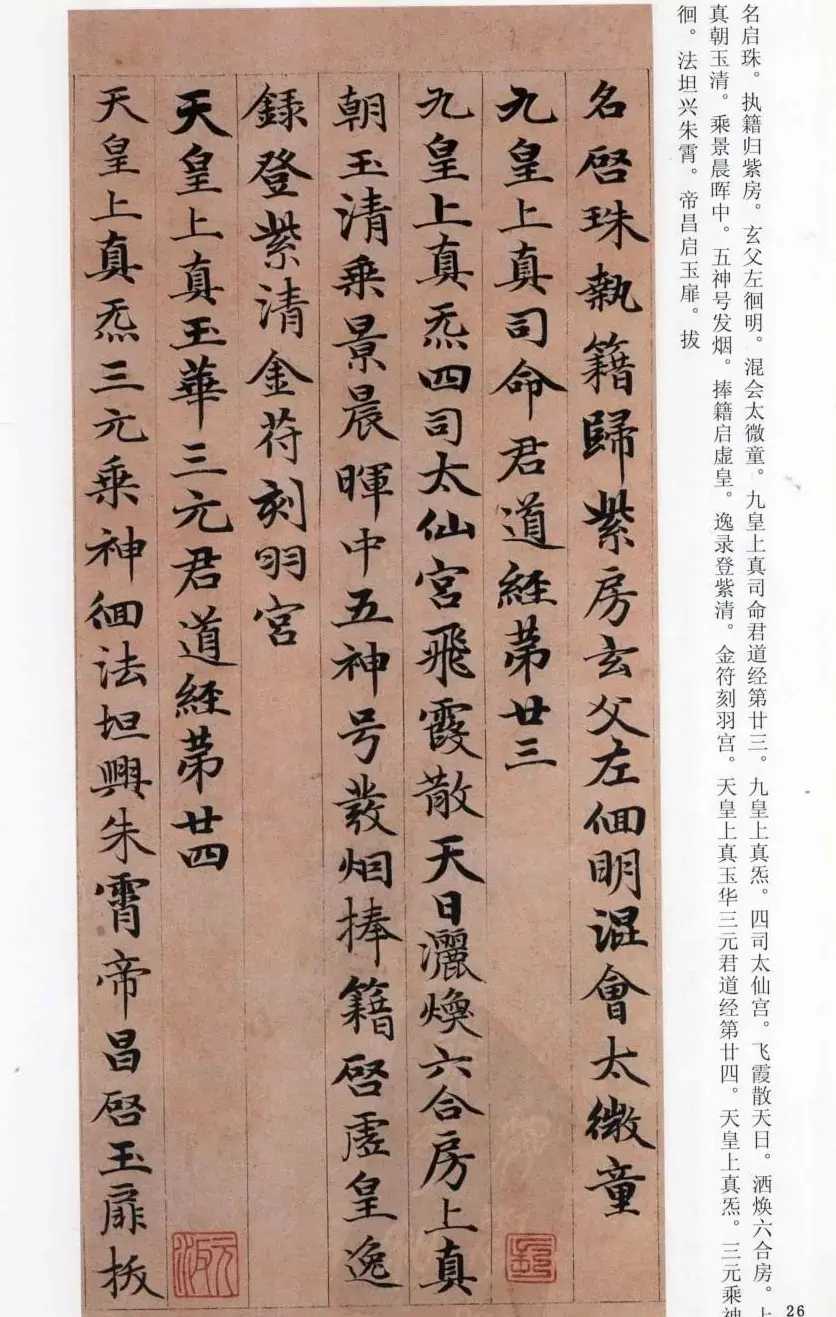 名启珠。执籍归紫房。玄父左徊明。混会太微童。九皇上真司命君道经第廿三。九皇上真炁。四司太仙宫。飞霞散天日。洒焕六合房。上
真朝玉清。乘景晨晖中。五神号发烟。捧籍启虚皇。逸录登紫清。金符刻羽宫。天皇上真玉华三元君道经第廿四。天皇上真炁。三元乘神
徊。法坦兴朱霄。帝昌启玉扉。拔
名啓珠執籍歸紫房玄父左佪明混會太微童
九皇上真司命君道經第廿三
九皇上真炁四司太仙宮飛霞散天日灑煥六合房上真
朝玉清乗景晨暉中五神号發烟捧籍啓虛皇逸
錄登紫清金苻刻羽宮
天皇上真玉華三元君道經第廿四
天皇上真炁三元乗神佪法坦興朱霄帝昌啓玉扉拔
26